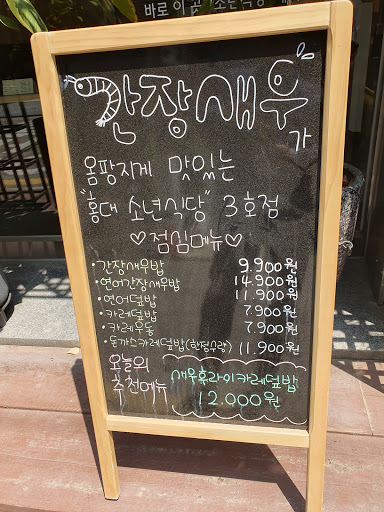 바로 이 곳
간장새우
가
옴팡지게 맛있는
"홍대 소년식당" 3호점
♡점심메뉴♡
·간장새우밥 9.900원
·연어간장새우밥 14.900원
·연어덮밥 11.900원
·카레덮밥 7.900원
·카레우동 7.900원
·돈까스카레덮밥(한정수량) 11.900원
오늘의
추천메뉴
새우후라이카레덮밥
12.000원